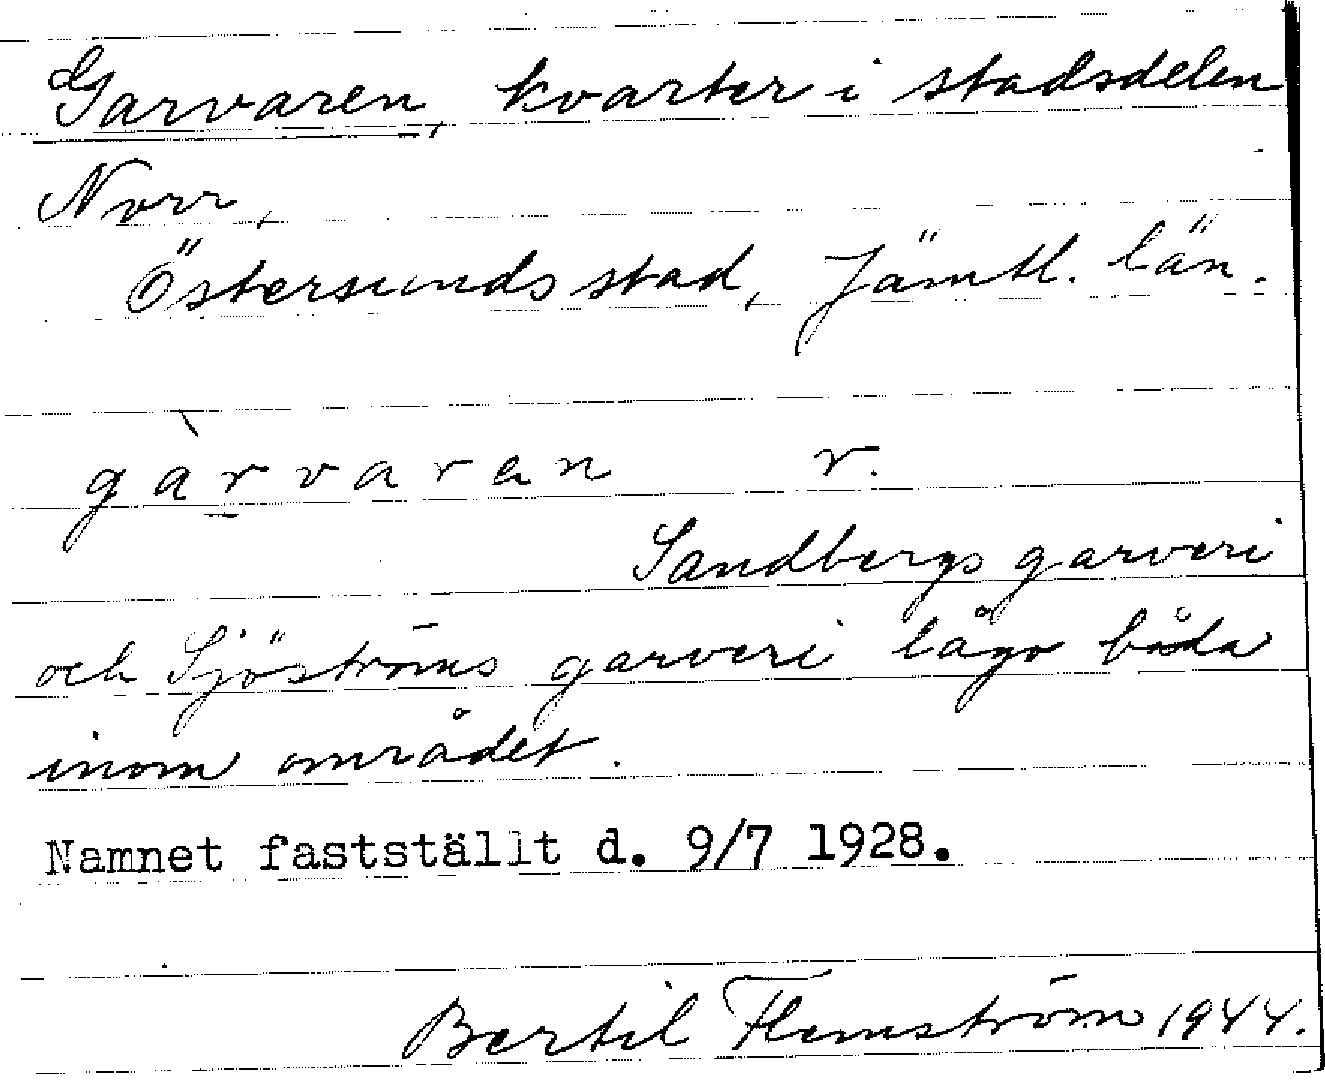 Garvaren, kvarter i stadsdelen
Norr,
Östersunds stad, Jämtl. län.
gàrvaran r.
Sandbergs garveri
och Sjöströms garveri lågo båda
inom området.
Namnet fastställt d. 9/7 1928.
Bertil Flemström 1944.